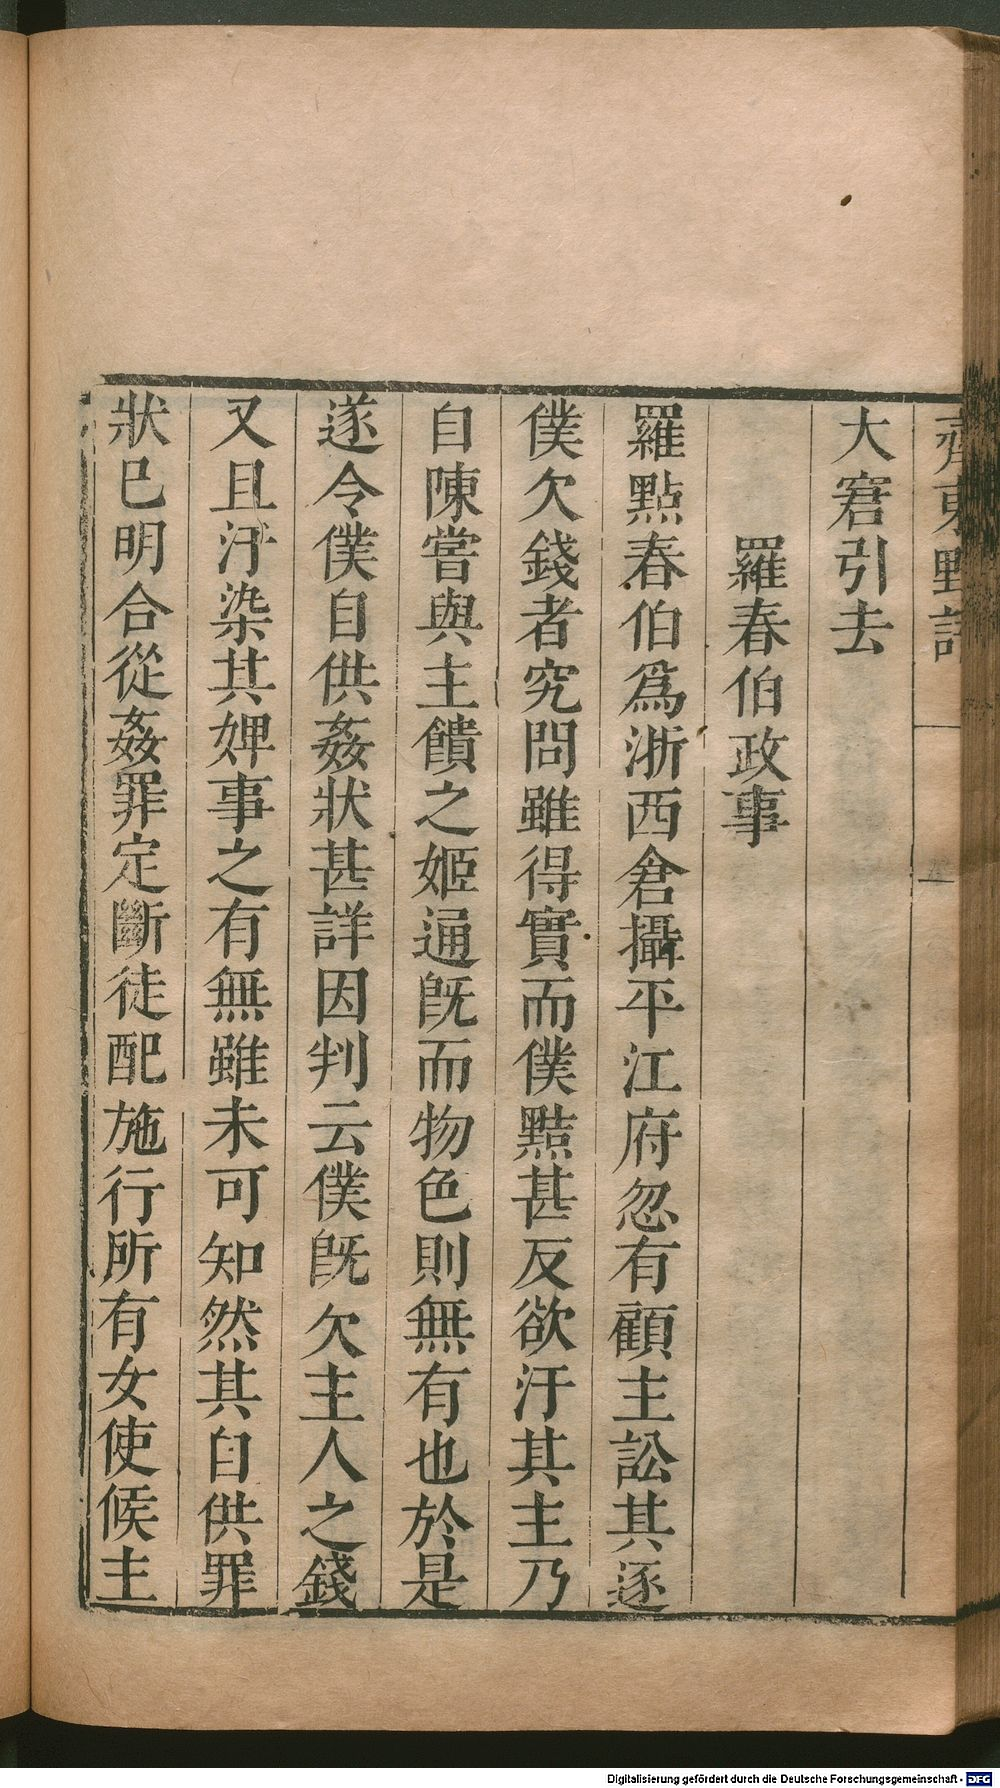 齊東野語
大窘引去
羅春伯政事
羅點春伯爲浙西倉攝平江府忽有顧主訟其逐
僕欠錢者究問雖得實而僕黠甚反欲汙其主乃
自陳嘗與主饋之姬通旣而物色則無有也於是
遂令僕自供姦狀甚詳因判云僕旣欠主人之錢
又且汙染其婢事之有無雖未可知然其自供罪
狀已明合從姦罪定斷徒配施行所有女使候主
Digitalisierung gefördert durch die Deutsche Forschungsgemeinschaft - DFG